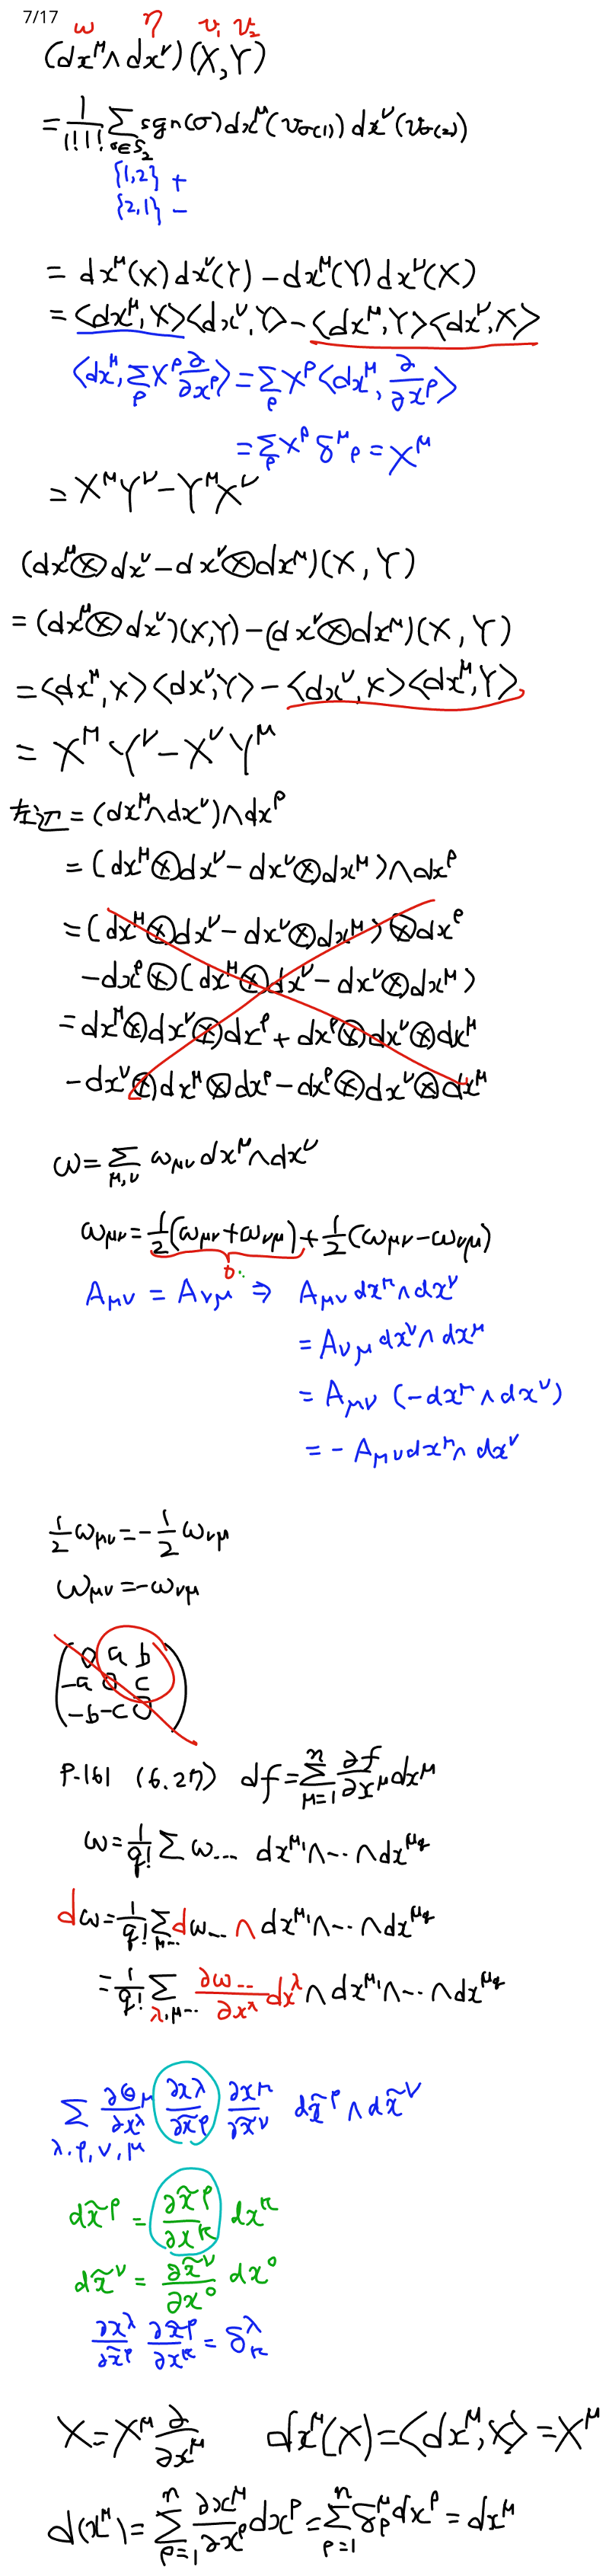 7/17
ω η v₁ v₂
(dx^μ∧dx^ν)(X,Y)
=1/(1!1!) Σ_{σ∈S₂} sgn(σ)dx^μ(v_{σ(1)})dx^ν(v_{σ(2)})
{1,2} +
{2,1} −
= dx^μ(X)dx^ν(Y)−dx^μ(Y)dx^ν(X)
=<dx^μ,X><dx^ν,Y>−<dx^μ,Y><dx^ν,X>
<dx^μ, Σ_ρ X^ρ ∂/∂x^ρ> = Σ_ρ X^ρ <dx^μ, ∂/∂x^ρ>
= Σ_ρ X^ρ δ^μ_ρ = X^μ
= X^μ Y^ν − Y^μ X^ν
(dx^μ⊗dx^ν−dx^ν⊗dx^μ)(X,Y)
= (dx^μ⊗dx^ν)(X,Y)−(dx^ν⊗dx^μ)(X,Y)
= <dx^μ,X><dx^ν,Y>−<dx^ν,X><dx^μ,Y>
= X^μ Y^ν − X^ν Y^μ
左辺=(dx^μ∧dx^ν)∧dx^ρ
=(dx^μ⊗dx^ν−dx^ν⊗dx^μ)∧dx^ρ
=(dx^μ⊗dx^ν−dx^ν⊗dx^μ)⊗dx^ρ
−dx^ρ⊗(dx^μ⊗dx^ν−dx^ν⊗dx^μ)
=dx^μ⊗dx^ν⊗dx^ρ+dx^ρ⊗dx^ν⊗dx^μ
−dx^ν⊗dx^μ⊗dx^ρ−dx^ρ⊗dx^ν⊗dx^μ
ω=Σ_{μ,ν} ω_{μν} dx^μ∧dx^ν
ω_{μν}=1/2(ω_{μν}+ω_{νμ})+1/2(ω_{μν}−ω_{νμ})
0
A_{μν} = A_{νμ} ⇒ A_{μν} dx^μ∧dx^ν
= A_{νμ} dx^ν∧dx^μ
= A_{μν} (−dx^μ∧dx^ν)
= − A_{μν} dx^μ∧dx^ν
1/2 ω_{μν}=−1/2 ω_{νμ}
ω_{μν}=−ω_{νμ}
(0 a b
−a 0 c
−b −c 0)
P.161 (6.27) df=Σ_{μ=1}^{n} ∂f/∂x^μ dx^μ
ω=1/q! Σ ω_{...} dx^{μ₁}∧…∧dx^{μ_q}
dω=1/q! Σ_{μ...} dω_{...} ∧ dx^{μ₁}∧…∧dx^{μ_q}
=1/q! Σ_{λ,μ...} ∂ω_{...}/∂x^λ dx^λ∧dx^{μ₁}∧…∧dx^{μ_q}
Σ_{λ,ρ,ν,μ} ∂θ_μ/∂x^λ ∂x^λ/∂x̃^ρ ∂x^μ/∂x̃^ν dx̃^ρ∧dx̃^ν
dx̃^ρ = ∂x̃^ρ/∂x^κ dx^κ
dx̃^ν = ∂x̃^ν/∂x^σ dx^σ
∂x^λ/∂x̃^ρ ∂x̃^ρ/∂x^κ = δ^λ_κ
X=X^μ ∂/∂x^μ dx^μ(X)=<dx^μ,X>=X^μ
d(x^μ)=Σ_{ρ=1}^{n} ∂x^μ/∂x^ρ dx^ρ=Σ_{ρ=1}^{n} δ^μ_ρ dx^ρ=dx^μ